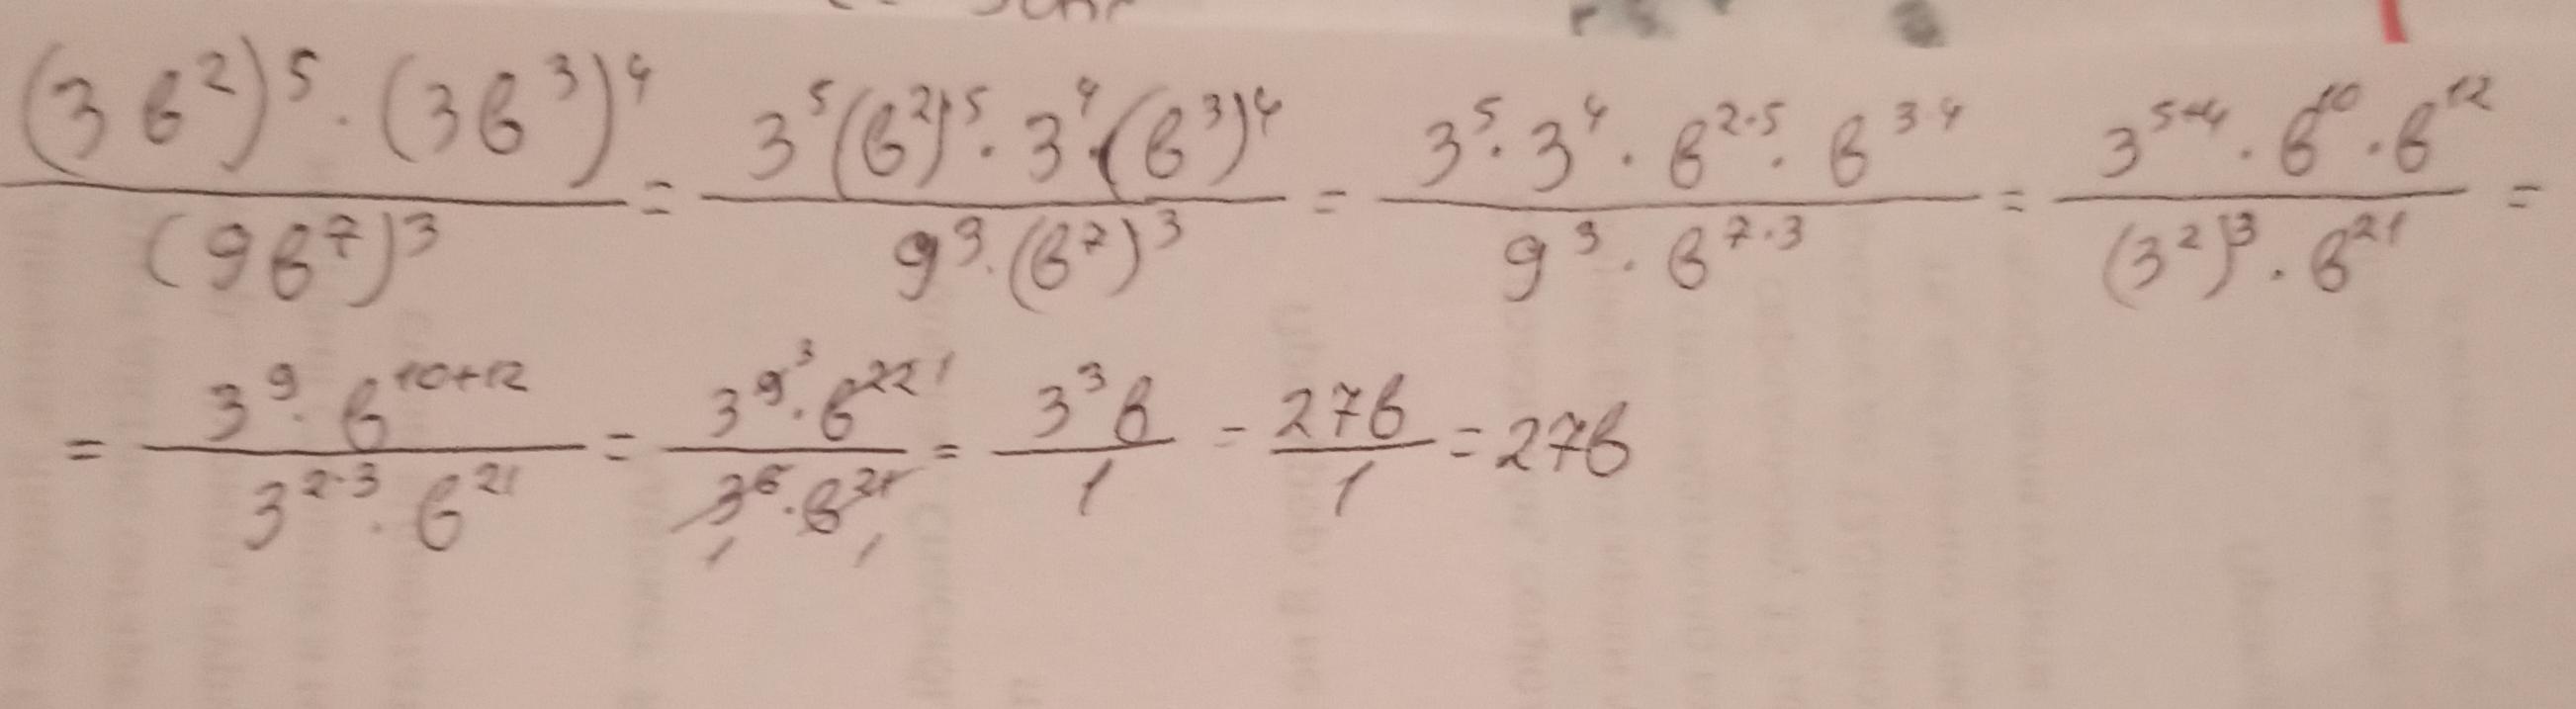 (3b²)⁵ · (3b³)⁴ / (9b⁷)³ = 3⁵(b²)⁵ · 3⁴ · (b³)⁴ / 9³ · (b⁷)³ = 3⁵ · 3⁴ · b²·⁵ · b³·⁴ / 9³ · b⁷·³ = 3⁵⁺⁴ · b¹⁰ · b¹² / (3²)³ · b²¹ =
= 3⁹ · b¹⁰⁺¹² / 3²·³ · b²¹ = 3⁹ ³ · b²² ¹ / 3⁶ ₁ · b²¹ ₁ = 3³b / 1 = 27b / 1 = 27b